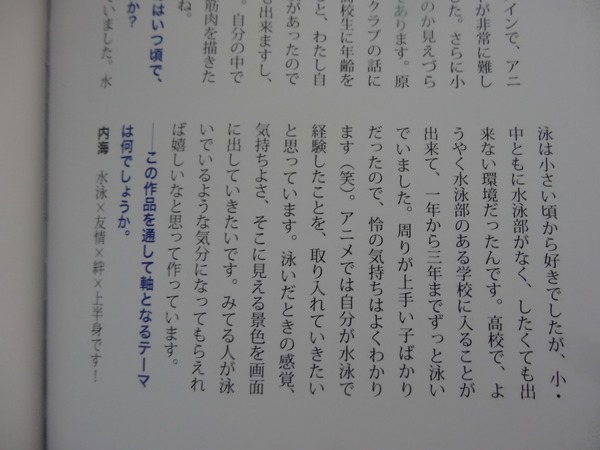 インで、アニ
が非常に難し
した。さらに小
のか見えづら
であります。原
クラブの話に
高校生に年齢を
と、わたし自
があったので
も出来ますし、
。自分の中で
筋肉を描きた
ね。
はいつ頃で、
か?
いました。水
泳は小さい頃から好きでしたが、小・
中ともに水泳部がなく、したくても出
来ない環境だったんです。高校で、よ
うやく水泳部のある学校に入ることが
出来て、一年から三年までずっと泳い
でいました。周りが上手い子ばかり
だったので、怜の気持ちはよくわかり
ます(笑)。アニメでは自分が水泳で
経験したことを、取り入れていきたい
と思っています。泳いだときの感覚、
気持ちよさ、そこに見える景色を画面
に出していきたいです。みてる人が泳
いでいるような気分になってもらえれ
ば嬉しいなと思って作っています。
――この作品を通して軸となるテーマ
は何でしょうか。
内海 水泳×友情×絆×上半身です!